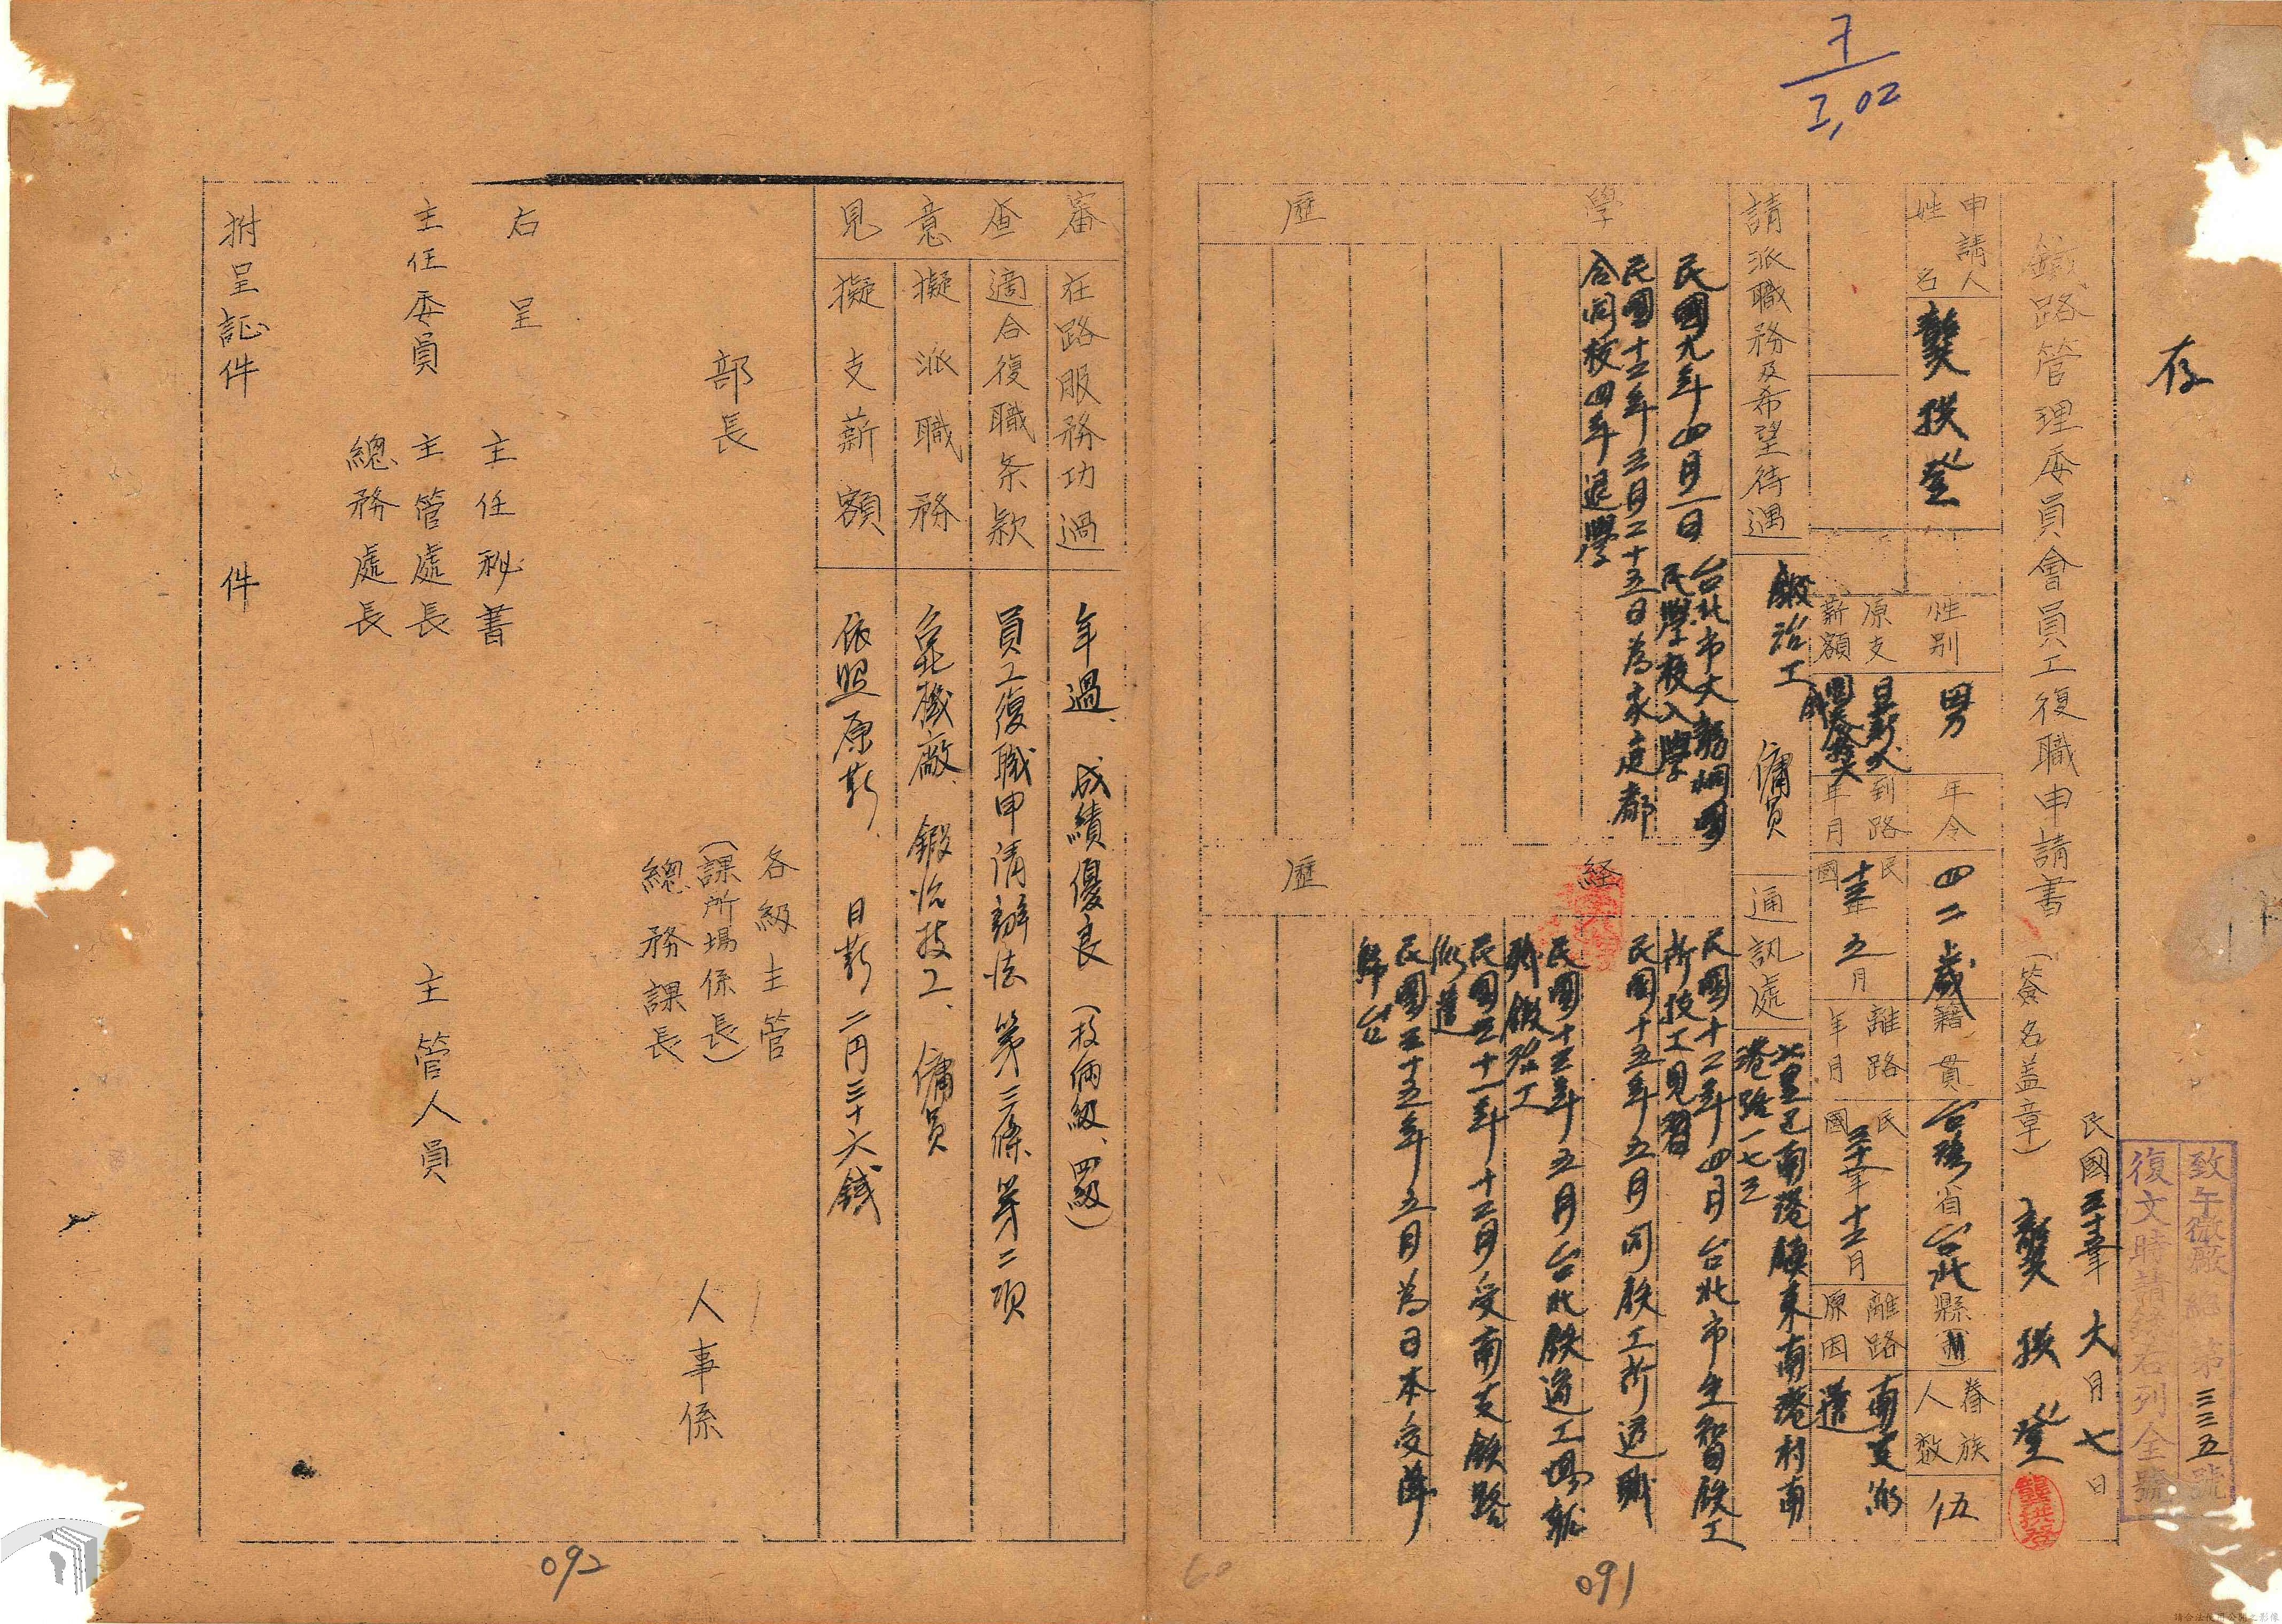 存
致午徽廠 經 第三三五號
復文時請錄右列全號
民國三十五年六月七日
鐵路管理委員會員工復職申請書 (簽名盖章) 龔
登
申請人姓名
龔 登
性別
男
年令
四二歲
籍貫
台灣省台北縣
眷族人数
伍
原支薪額
日薪
到路年月
民國十三年五月
離路年月
民國三十一年十二月
離路原因
南支派遣
請派職務及希望待遇
鍛冶工 傭員
通訊處
七星區南港鎮東南港村南
港路一七三
學歷
民國九年四月一日 台北市大稻埕國
民學校入學
民國十三年三月二十五日為家庭都
合同校四年退學
経歷
民國十三年四月台北市生智鉄工
所技工見習
民國十五年五月同鉄工所退職
民國十三年五月台北鉄道工場就
職鍛冶工
民國三十一年十二月受南支鉄路
派遣
民國三十五年五月為日本受降
歸台
091
審查意見
在路服務功過
年過、成績優良 (技倆級、四級)
適合復職条款
員工復職申请辦法 第三條第二項
擬派職務
台北機廠、鍛冶技工、傭員
擬支薪額
依照原薪、日薪 二円三十六錢
部長
各級主管
(課所場係長)
總務課長
人事係
右呈
主任秘書
主任委員 主管處長
總務處長
主管人員
附呈証件 件
092